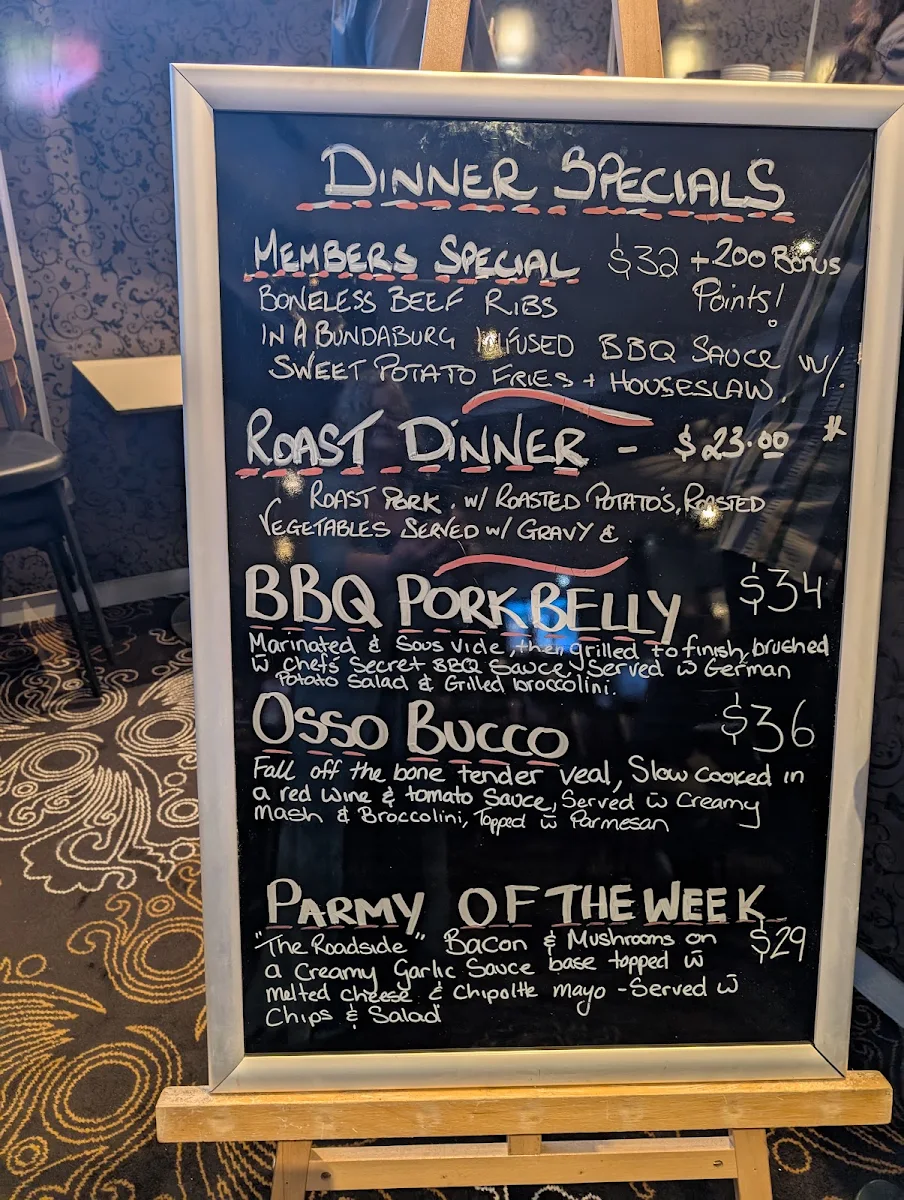 DINNER SPECIALS
MEMBERS SPECIAL $32 + 200 Bonus
Points!
BONELESS BEEF RIBS
IN A BUNDABURG INFUSED BBQ SAUCE W/
SWEET POTATO FRIES + HOUSESLAW.
ROAST DINNER - $23.00 *
ROAST PORK W/ ROASTED POTATO'S, ROASTED
VEGETABLES SERVED W/ GRAVY &
BBQ PORK BELLY $34
Marinated & Sous vide, then grilled to finish, brushed
w chefs Secret BBQ Sauce, Served w German
Potato Salad & Grilled broccolini.
OSSO BUCCO $36
Fall off the bone tender veal, Slow cooked in
a red wine & tomato Sauce, Served w Creamy
Mash & Broccolini, Topped w Parmesan
PARMY OF THE WEEK
"The Roadside" Bacon & Mushrooms on $29
a Creamy Garlic Sauce base topped w
melted cheese & Chipoltte mayo - Served w
Chips & Salad